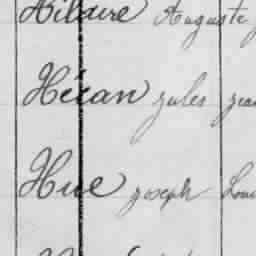 Hilaire Auguste
Hécan jules jean
Hue joseph Loui